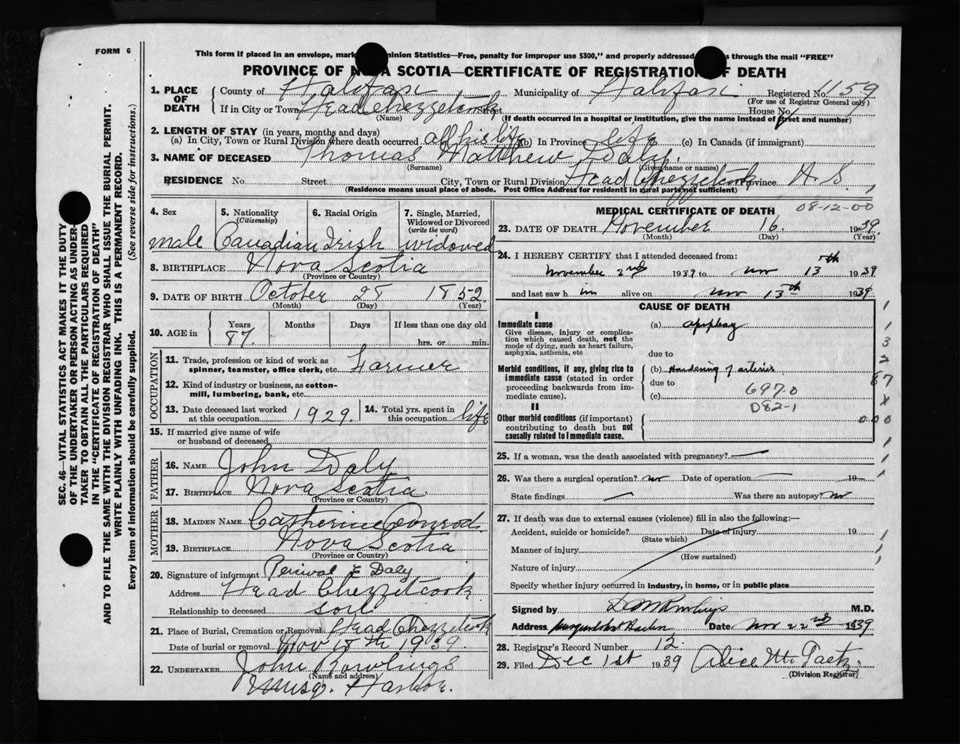 FORM 6
This form if placed in an envelope, mar Dominion Statistics—Free, penalty for improper use $300," and properly addressed through the mail "FREE"
PROVINCE OF NOVA SCOTIA—CERTIFICATE OF REGISTRATION OF DEATH
1. PLACE OF DEATH
County of Halifax Municipality of Halifax Registered No. 1159
(For use of Registrar General only)
If in City or Town Head Chezzetcook Street House No.
(Name) (If death occurred in a hospital or institution, give the name instead of street and number)
2. LENGTH OF STAY (in years, months and days)
(a) In City, Town or Rural Division where death occurred all his life (b) In Province life (c) In Canada (if immigrant)
3. NAME OF DECEASED Thomas Matthew Daly
(Surname) (Given name or names)
RESIDENCE No. Street City, Town or Rural Division Head Chezzetcook Province N.S.
(Residence means usual place of abode. Post Office Address for residents in rural parts not sufficient)
4. Sex
male
5. Nationality
(Citizenship)
Canadian
6. Racial Origin
Irish
7. Single, Married, Widowed or Divorced
(write the word)
widowed
8. BIRTHPLACE Nova Scotia
(Province or Country)
9. DATE OF BIRTH October 28 1852
(Month) (Day) (Year)
10. AGE in Years Months Days If less than one day old
87 hrs. or min.
OCCUPATION
11. Trade, profession or kind of work as spinner, teamster, office clerk, etc. Farmer
12. Kind of industry or business, as cotton-mill, lumbering, bank, etc.
13. Date deceased last worked at this occupation 1929
14. Total yrs. spent in this occupation life
15. If married give name of wife or husband of deceased
FATHER
16. NAME John Daly
17. BIRTHPLACE Nova Scotia
(Province or Country)
MOTHER
18. MAIDEN NAME Catherine Conrod
19. BIRTHPLACE Nova Scotia
(Province or Country)
20. Signature of informant Percival E Daly
Address Head Chezzetcook
Relationship to deceased son
21. Place of Burial, Cremation or Removal Head Chezzetcook
Date of burial or removal Nov 18th 1939
22. UNDERTAKER John Rowlings
(Name and address)
Musq. Harbor.
MEDICAL CERTIFICATE OF DEATH 08-12-00
23. DATE OF DEATH November 16. 1939.
(Month) (Day) (Year)
24. I HEREBY CERTIFY that I attended deceased from:
November 2nd 1939 to Nov 13th 1939
and last saw him alive on Nov 13th 1939
CAUSE OF DEATH
I
Immediate cause
Give disease, injury or complication which caused death, not the mode of dying, such as heart failure, asphyxia, asthenia, etc
(a) apoplexy
due to
Morbid conditions, if any, giving rise to immediate cause (stated in order proceeding backwards from immediate cause).
(b) Hardening of arteries
due to
(c) 697.0
D82-1
II
Other morbid conditions (if important) contributing to death but not causally related to immediate cause.
25. If a woman, was the death associated with pregnancy?
26. Was there a surgical operation? no Date of operation 19
State findings Was there an autopsy no
27. If death was due to external causes (violence) fill in also the following:
Accident, suicide or homicide? Date of injury 19
(State which)
Manner of injury
(How sustained)
Nature of injury
Specify whether injury occurred in industry, in home, or in public place
Signed by M.D.
Address Musquodoboit Harbor Date Nov 22nd 1939
28. Registrar's Record Number 12.
29. Filed Dec 1st 1939 Alice M. Gaetz
(Division Registrar)
SEC. 46—VITAL STATISTICS ACT MAKES IT THE DUTY OF THE UNDERTAKER OR PERSON ACTING AS UNDERTAKER TO OBTAIN ALL THE PARTICULARS REQUIRED IN THE "CERTIFICATE OF REGISTRATION OF DEATH" AND TO FILE THE SAME WITH THE DIVISION REGISTRAR WHO SHALL ISSUE THE BURIAL PERMIT.
WRITE PLAINLY WITH UNFADING INK. THIS IS A PERMANENT RECORD.
Every item of information should be carefully supplied. (See reverse side for instructions.)